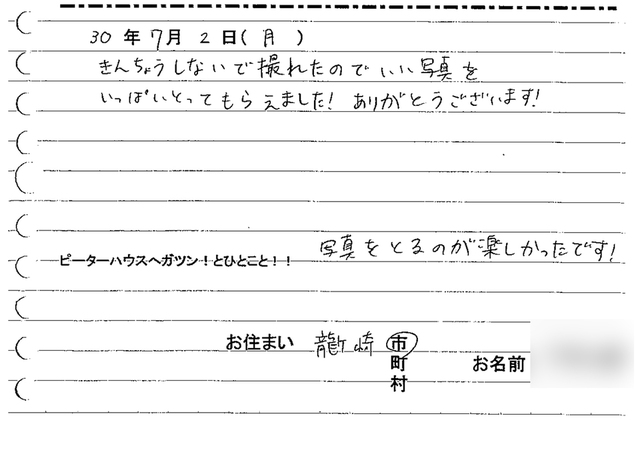 30 年 7月 2 日( 月 )
きんちょうしないで撮れたのでいい写真を
いっぱいとってもらえました! ありがとうございます!
写真をとるのが楽しかったです!
ピーターハウスへガツン!とひとこと!!
お住まい 龍ケ崎 市
町 お名前
村